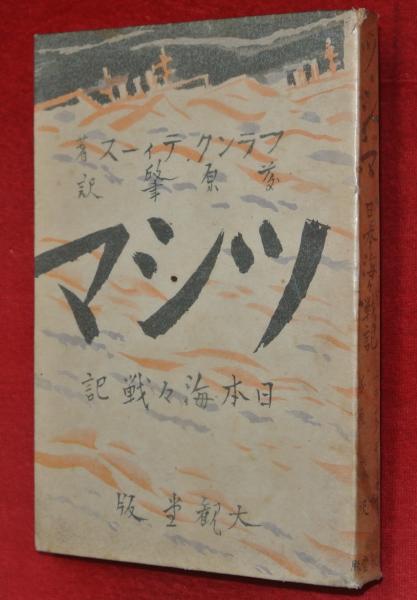 フランク・ティース 著
原 肇 訳
ツシマ
日本海々戦記
大観堂版
ツシマ 日本海々戦記